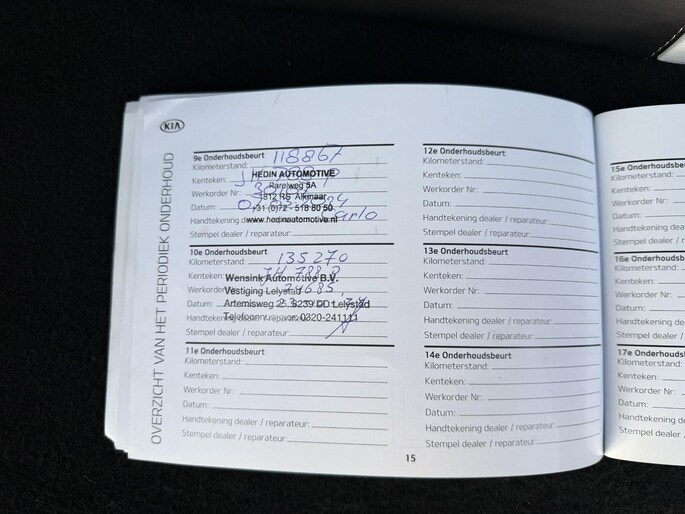 KIA
OVERZICHT VAN HET PERIODIEK ONDERHOUD
9e Onderhoudsbeurt 118867
Kilometerstand:
HEDIN AUTOMOTIVE
Kenteken:
5A
Werkorder Nr:
1812 RS Alkmaar
Datum:
+31 (0)72 - 518 80 50
Handtekening
www.hedinautomotive.nl
Stempel dealer / reparateur:
10e Onderhoudsbeurt
Kilometerstand: 135270
Kenteken:
Wensink Automotive B.V.
Vestiging Lelystad
Datum:
Artemisweg 25, 8239 DD Lelystad
Telefoonnr. 0320-241111
Stempel dealer / reparateur:
11e Onderhoudsbeurt
Kilometerstand:
Kenteken:
Werkorder Nr:
Datum:
Handtekening dealer / reparateur:
Stempel dealer / reparateur:
12e Onderhoudsbeurt
Kilometerstand:
Kenteken:
Werkorder Nr:
Datum:
Handtekening dealer / reparateur:
Stempel dealer / reparateur:
13e Onderhoudsbeurt
Kilometerstand:
Kenteken:
Werkorder Nr:
Datum:
Handtekening dealer / reparateur:
Stempel dealer / reparateur:
14e Onderhoudsbeurt
Kilometerstand:
Kenteken:
Werkorder Nr:
Datum:
Handtekening dealer / reparateur:
Stempel dealer / reparateur:
15
15e Onderhoudsbe
Kilometerstand:
Kenteken:
Werkorder Nr:
Datum:
Handtekening dea
Stempel dealer /
16e Onderhoudsb
Kilometerstand:
Kenteken:
Werkorder Nr:
Datum:
Handtekening de
Stempel dealer /
17e Onderhouds
Kilometerstand:
Kenteken:
Werkorder Nr:
Datum:
Handtekening d
Stempel dealer